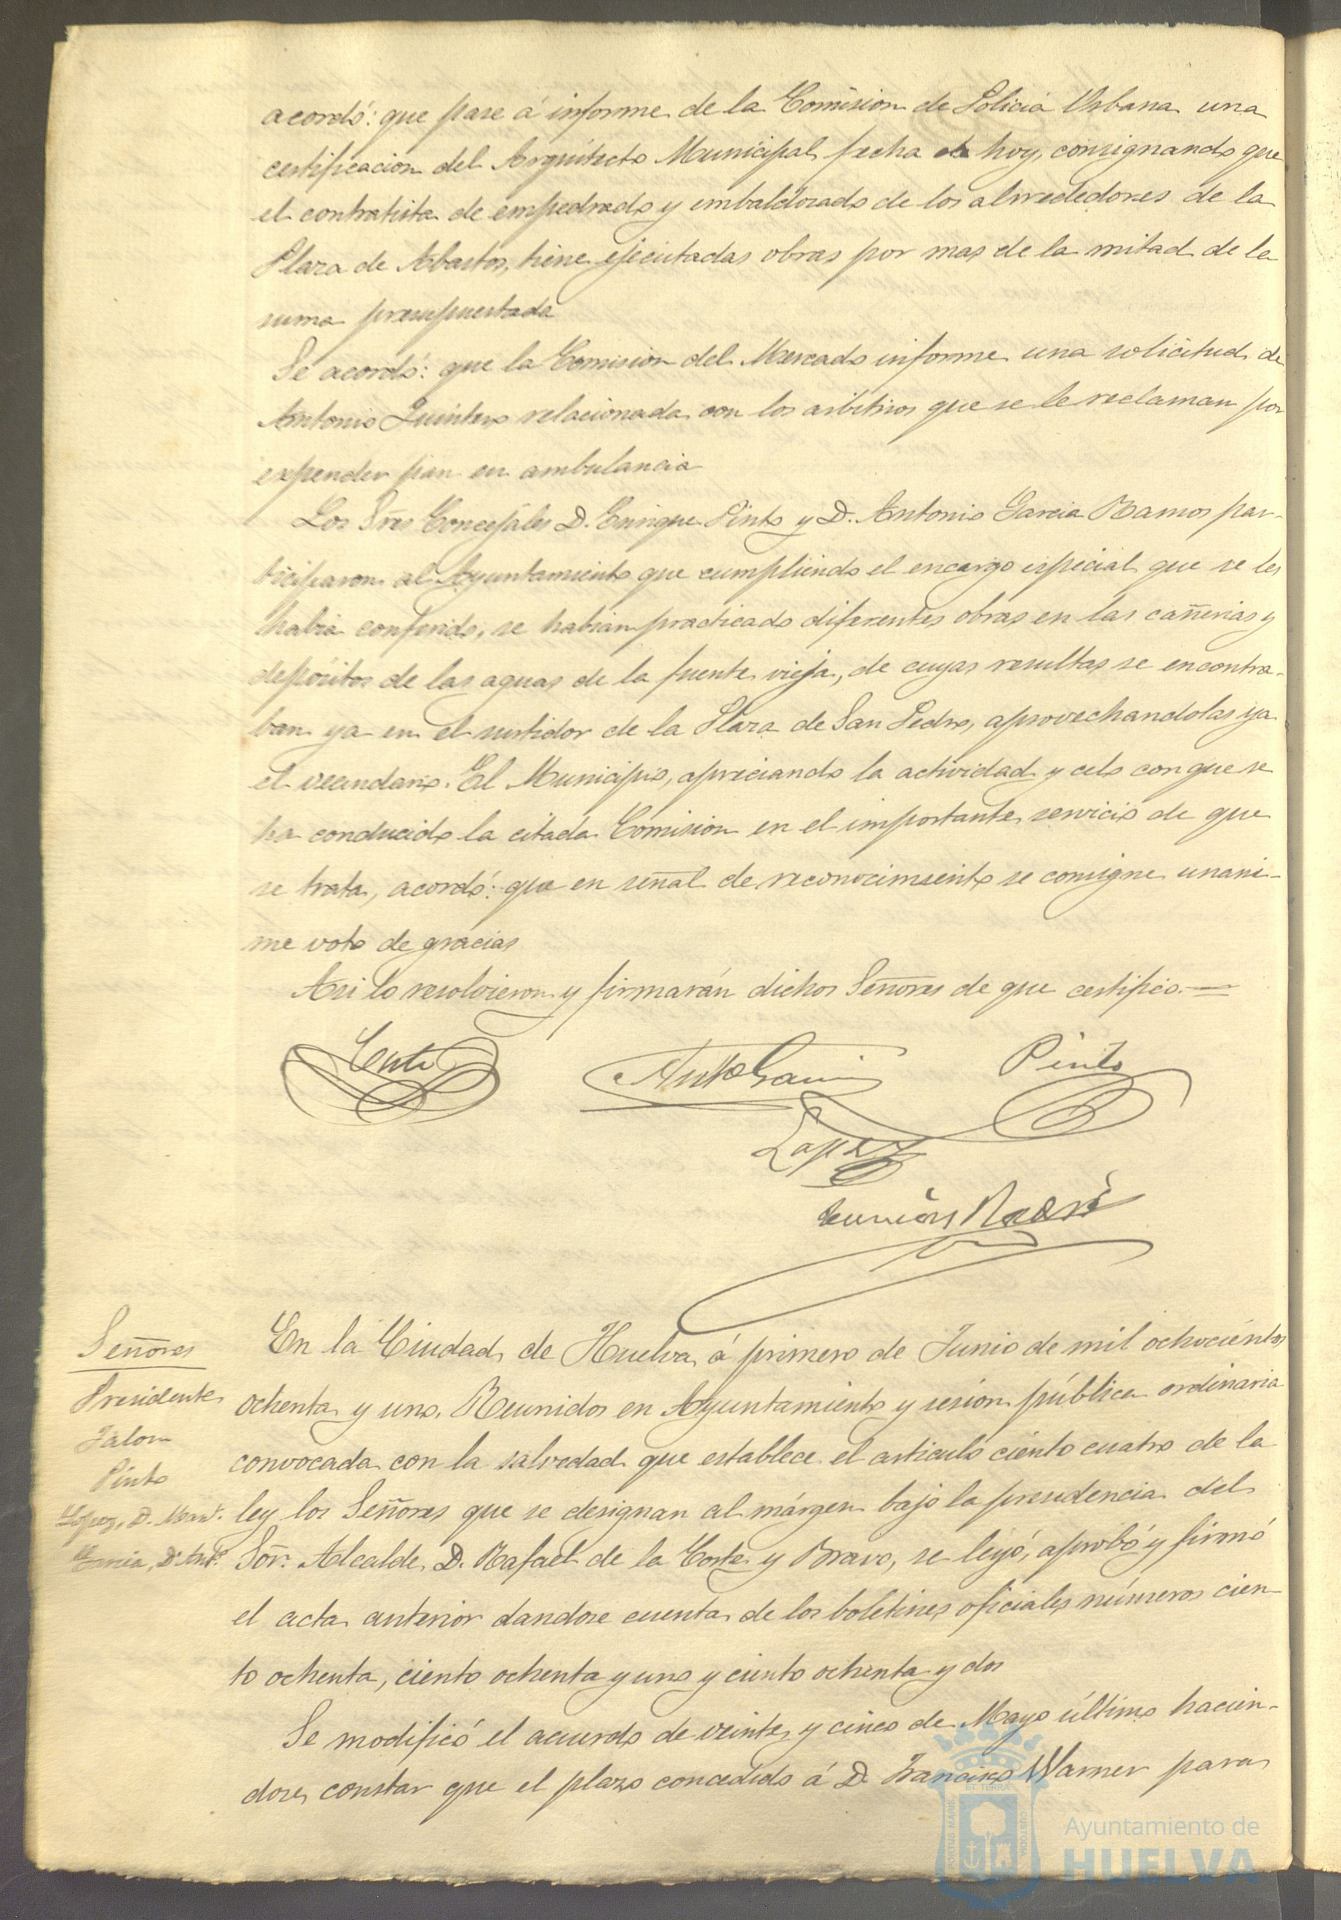 acordó: que pase á informe de la Comision de Policia Urbana una
certificacion del Arquitecto Municipal fecha de hoy, consignando que
el contratista de empedrado y embaldosado de los alrededores de la
Plaza de Abastos, tiene ejecutadas obras por mas de la mitad de la
suma presupuestada
Se acordó: que la Comision del Mercado informe una solicitud de
Antonio Quintero relacionada con los arbitrios que se le reclaman por
expender pan en ambulancia
Los Sres Concejales D. Enrique Pinto y D. Antonio Garcia Ramos par-
ticiparon al Ayuntamiento que cumpliendo el encargo especial que se les
habia conferido, se habian practicado diferentes obras en las cañerias y
depósitos de las aguas de la fuente vieja, de cuyas resultas se encontra-
ban ya en el surtidor de la Plaza de San Pedro, aprovechandolas ya
el vecindario. El Municipio, apreciando la actividad y celo con que se
ha conducido la citada Comision en el importante servicio de que
se trata, acordó: que en señal de reconocimiento se consigne unani-
me voto de gracias
Asi lo resolvieron y firmarán dichos Señores de que certifico.
Corte
Antº Garcia
Pinto
Lopez
Señores
Presidente
Jalon
Pinto
Lopez, D. Manl.
Garcia, D. Antº
En la Ciudad de Huelva á primero de Junio de mil ochocientos
ochenta y uno. Reunidos en Ayuntamiento y sesion pública ordinaria
convocada con la salvedad que establece el articulo ciento cuatro de la
ley los Señores que se designan al márgen bajo la presidencia del
Sor. Alcalde D. Rafael de la Corte y Bravo, se leyó, aprobó y firmó
el acta anterior dandose cuenta de los boletines oficiales números cien-
to ochenta, ciento ochenta y uno y ciento ochenta y dos
Se modificó el acuerdo de veinte y cinco de Mayo último hacien-
dose constar que el plazo concedido á D. Francisco Warner para
Ayuntamiento de
HUELVA